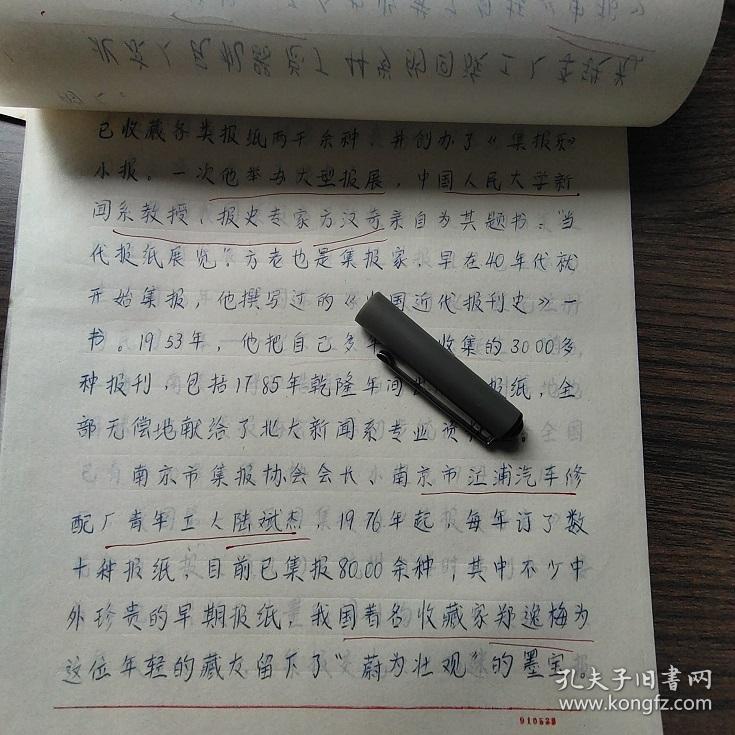 已收藏各类报纸两千余种，并创办了《集报乐》
小报。一次他举办大型报展，中国人民大学新
闻系教授、报史专家方汉奇亲自为其题书：当
代报纸展览。方老也是集报家，早在40年代就
开始集报，他撰写过的《 国近代报刊史》一
书。1953年，他把自己多年 收集的3000多
种报刊，包括1785年乾隆年间 报纸，全
部无偿地献给了北大新闻系专业资
南京市集报协会会长、南京市江浦汽车修
配厂青年工人陆斌杰，1976年起报每年订了数
十种报纸，目前已集报8000余种，其中不少中
外珍贵的早期报纸，我国著名收藏家郑逸梅为
这位年轻的藏友留下了“蔚为壮观”的墨宝。
孔夫子旧书网
www.kongfz.com